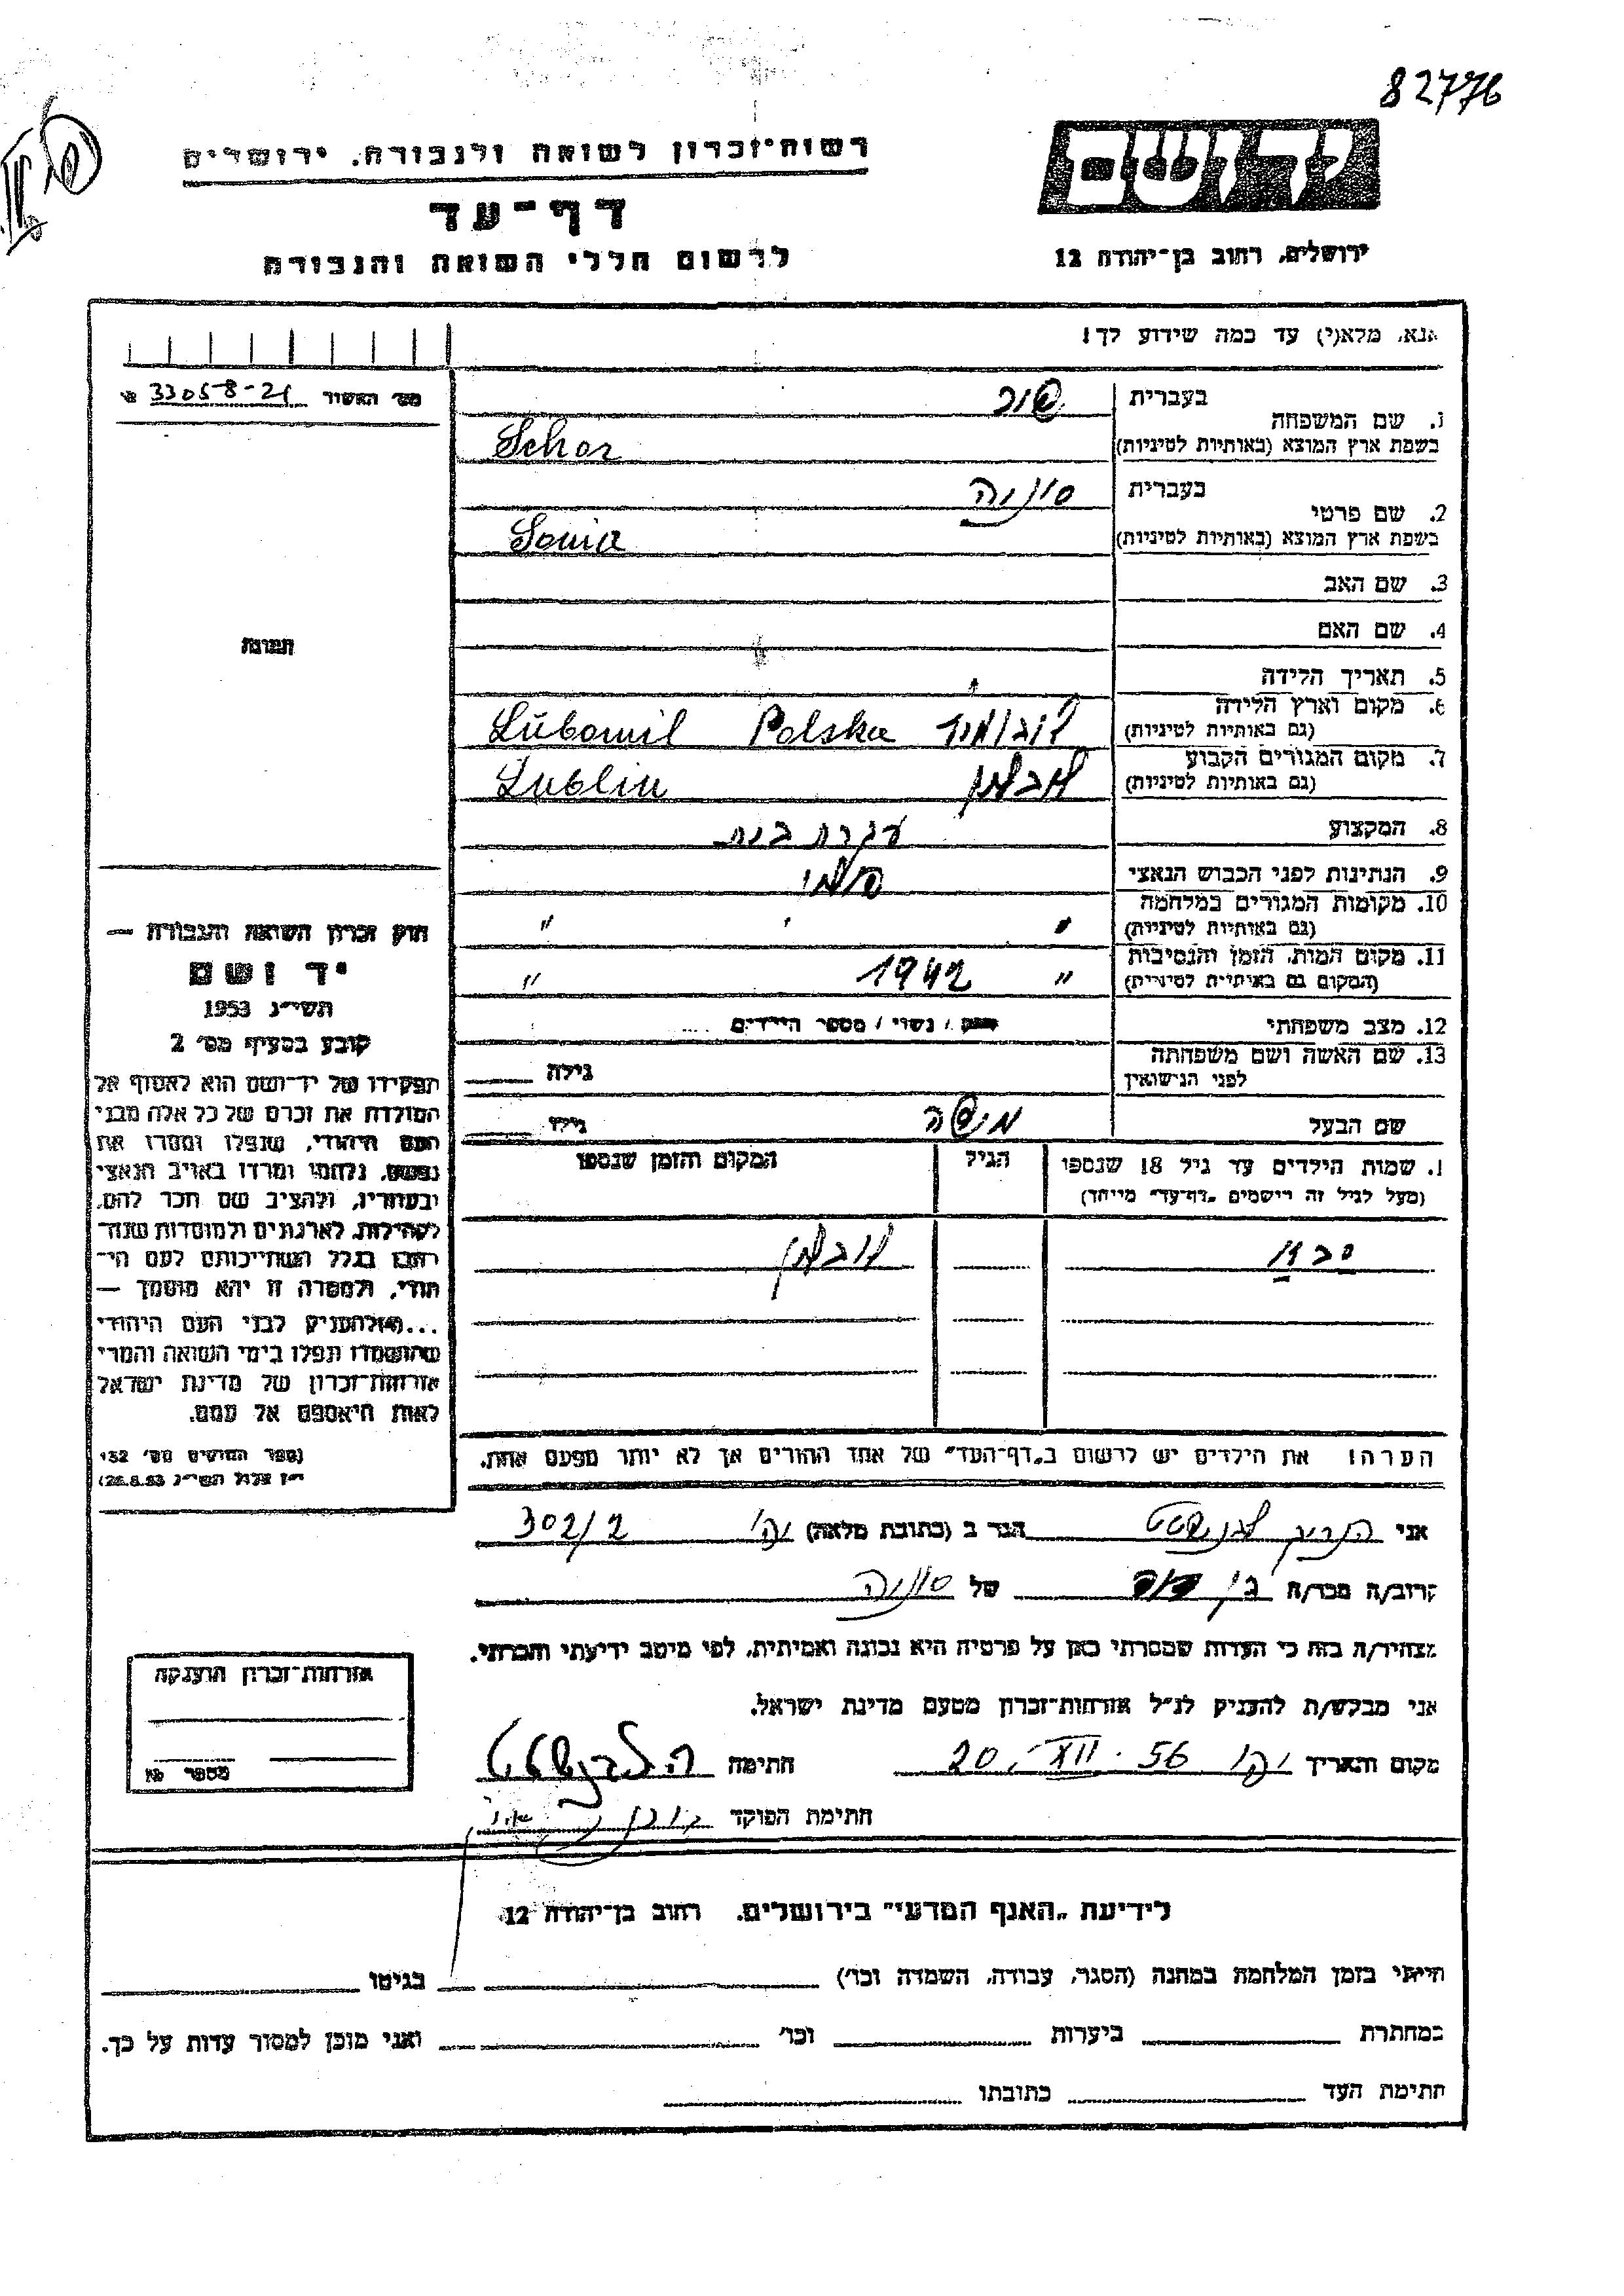 82776
רשות־זכרון לשואה ולגבורה, ירושלים
דף־עד
לרשום חללי השואה והגבורה
ידושם
ירושלים, רחוב בן־יהודה 12
אנא, מלא(י) עד כמה שידוע לך!
מס׳ האשור 33058-21
1. שם המשפחה
בעברית שור
בשפת ארץ המוצא (באותיות לטיניות) Schor
2. שם פרטי
בעברית סוניה
בשפת ארץ המוצא (באותיות לטיניות) Sonia
3. שם האב
4. שם האם
5. תאריך הלידה
6. מקום וארץ הלידה
(גם באותיות לטיניות) לובומיל Polska Lubomil
7. מקום המגורים הקבוע
(גם באותיות לטיניות) לובלין Lublin
8. המקצוע עקרת בית
9. הנתינות לפני הכבוש הנאצי פולני
10. מקומות המגורים במלחמה
(גם באותיות לטיניות) " " "
11. מקום המות, הזמן והנסיבות
(המקום גם באותיות לטיניות) " 1942 "
12. מצב משפחתי רווק / נשוי / מספר הילדים ....
13. שם האשה ושם משפחתה
לפני הנישואין גילה
שם הבעל משה גילו
1. שמות הילדים עד גיל 18 שנספו
(מעל לגיל זה רושמים „דף־עד” מיוחד)
הגיל
המקום והזמן שנספו
לובלין
הערה: את הילדים יש לרשום ב„דף־העד” של אחד ההורים אך לא יותר מפעם אחת.
תמונה
חוק זכרון השואה והגבורה —
יד ושם
תשי״ג 1953
קובע בסעיף מס׳ 2
תפקידו של יד־ושם הוא לאסוף אל
המולדת את זכרם של כל אלה מבני
העם היהודי, שנפלו ומסרו את
נפשם, נלחמו ומרדו באויב הנאצי
ובעוזריו, ולהציב שם וזכר להם,
לקהילות, לארגונים ולמוסדות שנח־
רבו בגלל השתייכותם לעם הי־
הודי, ולמטרה זו יהא מוסמך —
...(4) להעניק לבני העם היהודי
שהושמדו ונפלו בימי השואה והמרי
אזרחות־זכרון של מדינת ישראל
לאות היאספם אל עמם.
(ספר החוקים מס׳ 132
י״ז אלול תשי״ג 28.8.53)
אני הגר ב (כתובת מלאה) 302/2
קרוב/ה מכר/ה בן של סוניה
מצהיר/ה בזה כי העדות שמסרתי כאן על פרטיה היא נכונה ואמיתית, לפי מיטב ידיעתי והכרתי.
אני מבקש/ת להעניק לנ״ל אזרחות־זכרון מטעם מדינת ישראל.
מקום ותאריך 20. XII. 56 חתימה
חתימת הפוקד
אזרחות־זכרון הוענקה
מספר
לידיעת „האגף המדעי” בירושלים, רחוב בן־יהודה 12
הייתי בזמן המלחמה במחנה (הסגר, עבודה, השמדה וכו׳) בגיטו
במחתרת ביערות וכו׳ ואני מוכן למסור עדות על כך.
חתימת העד כתובתו